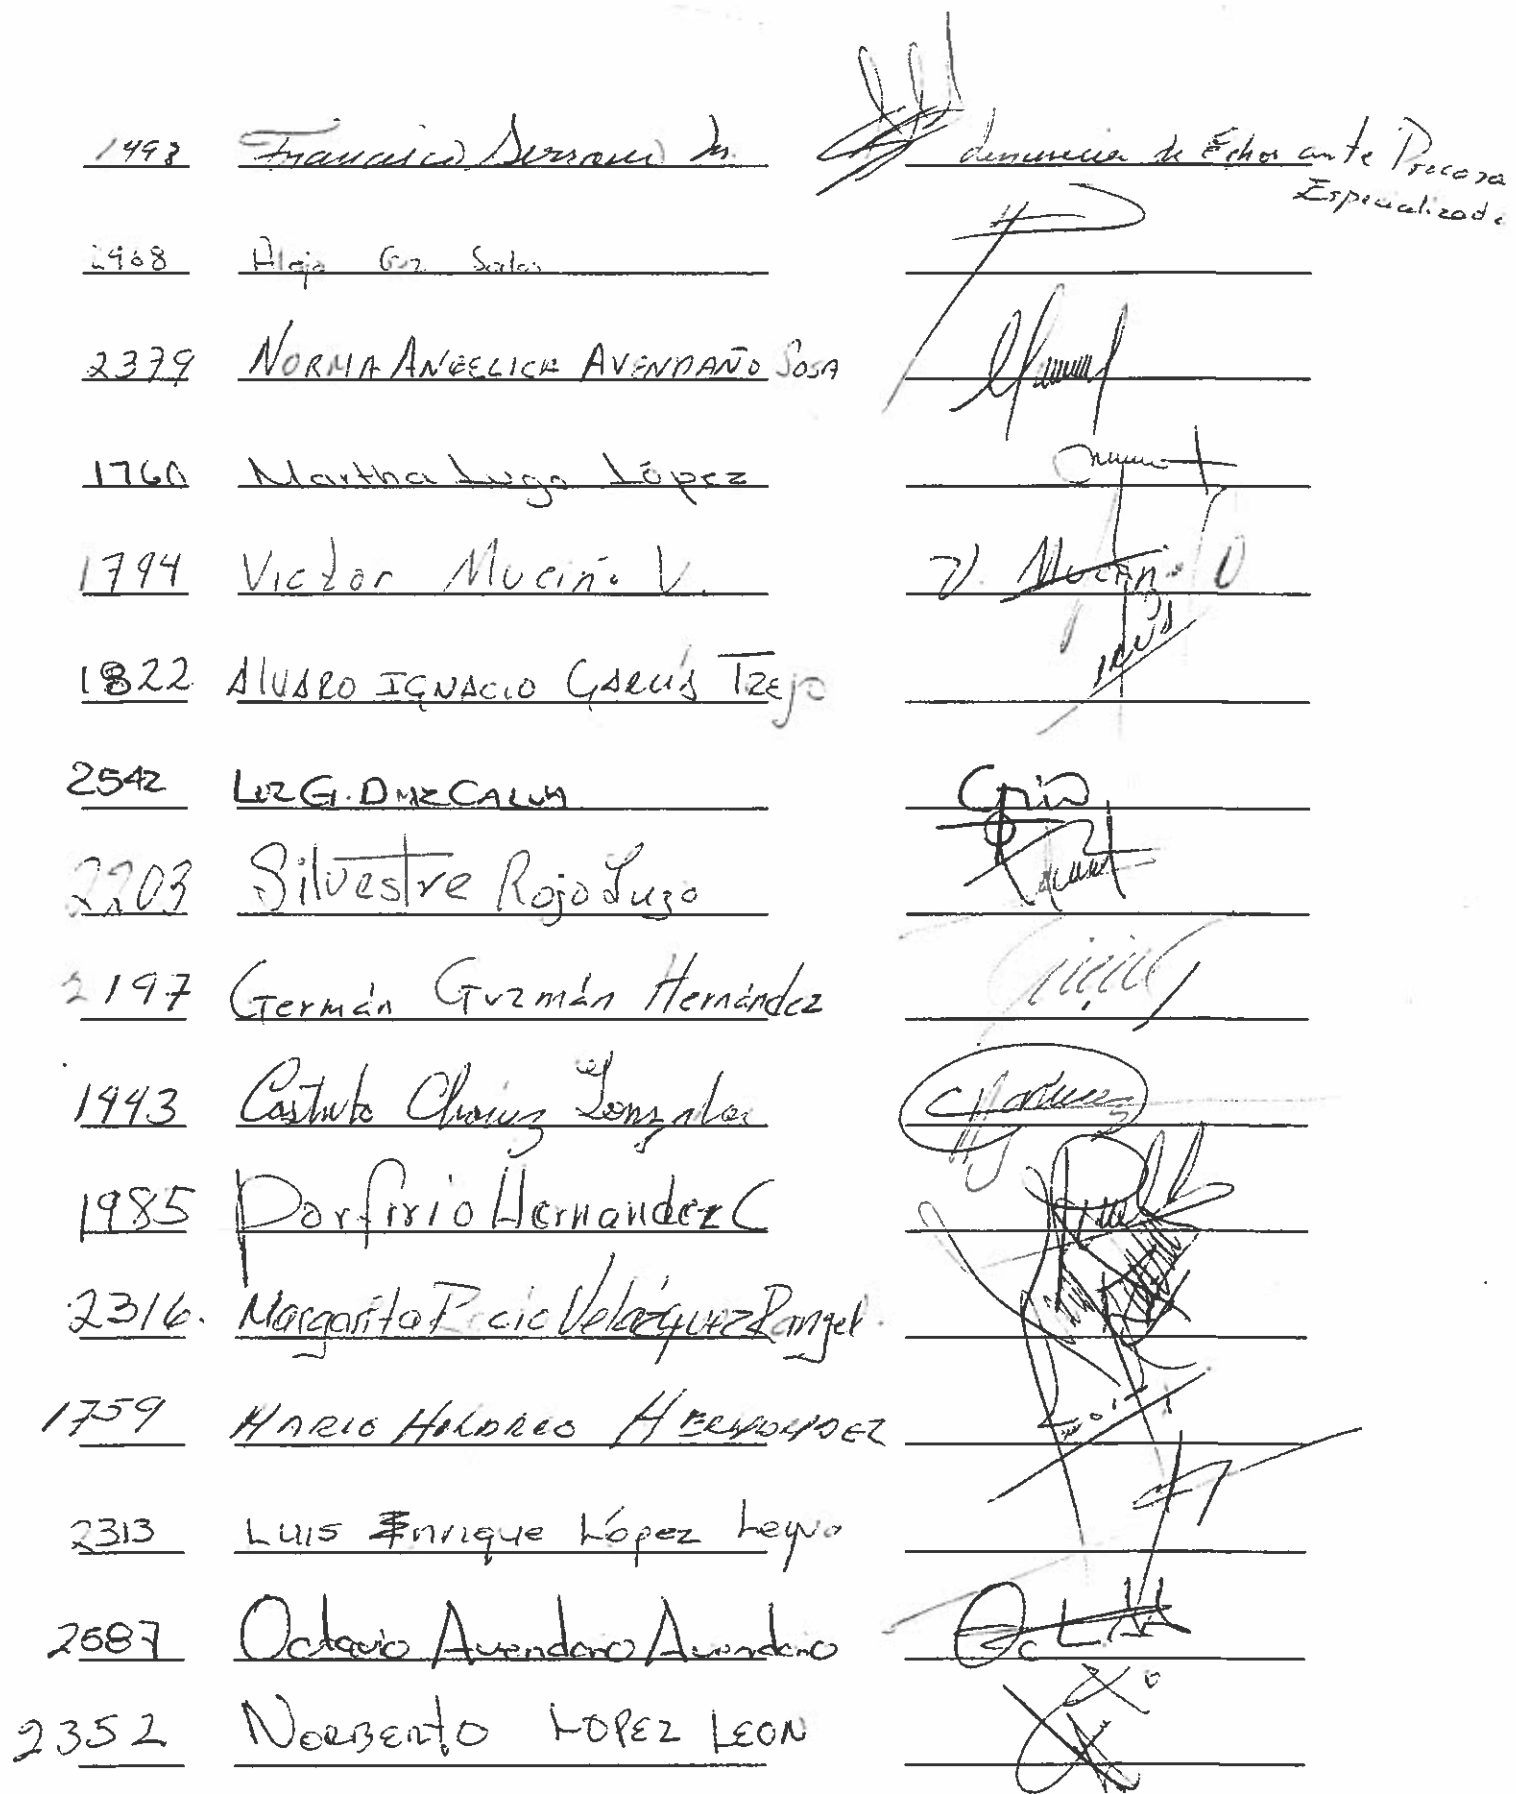 1493 Francisco Serrano M. denuncia de Echos ante Procora
Especializada
1908 Alejo
2379 NORMA ANGELICA AVENDAÑO SOSA
1760 Martha Lugo López
1794 Victor Muciño V. V. Muciño V
1822 ALVARO IGNACIO GARCÍA TREJO
2542 LUZ G. DIAZ CALVA
2203 Silvestre Rojo Lugo
2197 Germán Guzmán Hernández
1443 Castulo Chávez González
1985 Porfirio Hernandez C
2316. Margarita Velázquez Rangel.
1759 MARIO HERNANDEZ
2313 Luis Enrique López Leyva
2687 Octavio Avendano Avendano
2352 NORBERTO LOPEZ LEON